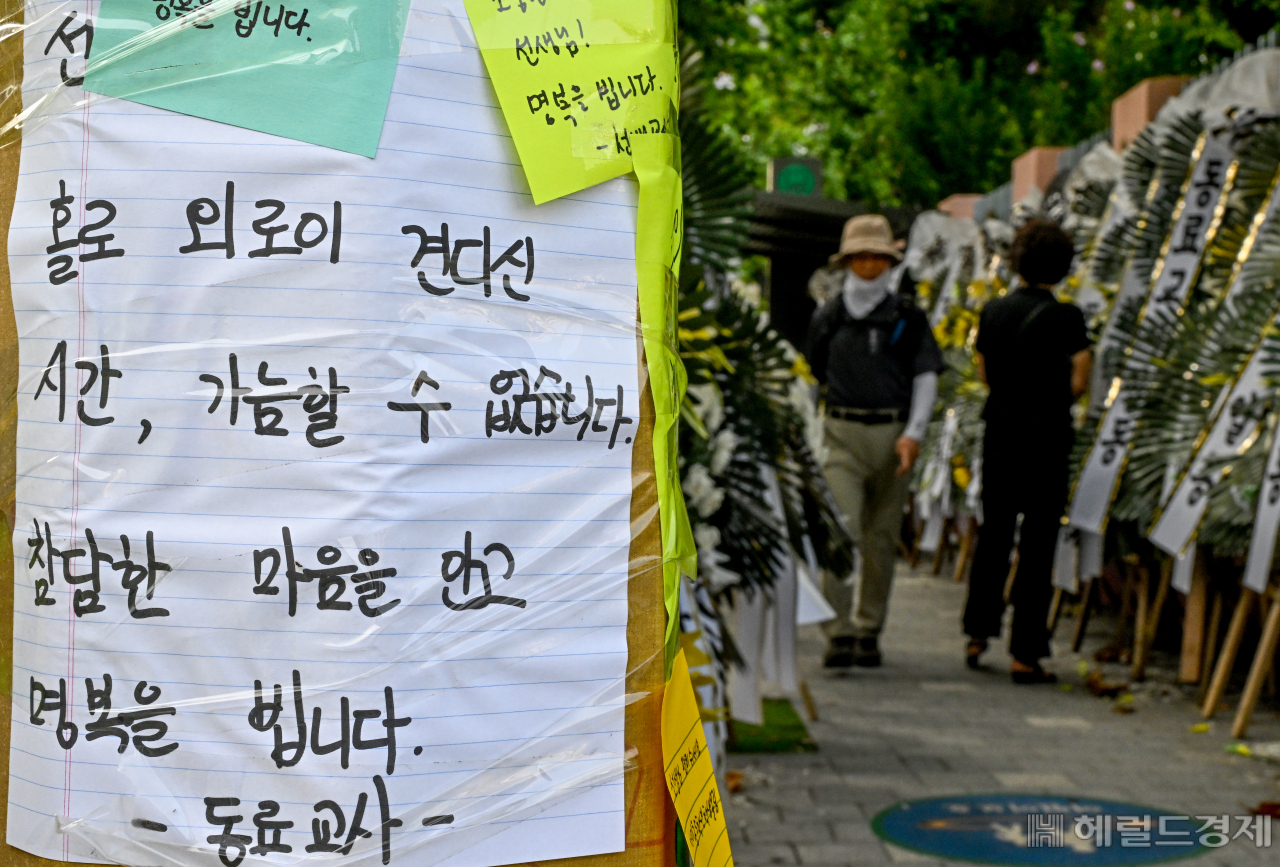 선
명복을 빕니다.
선생님!
명복을 빕니다.
홀로 외로이 견디신
시간, 가늠할 수 없습니다.
참담한 마음을 안고
명복을 빕니다.
- 동료교사 -
동료교
헤럴드경제